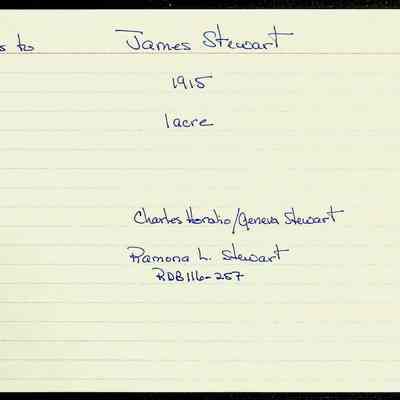 s to James Stewart
1915
1 acre
Charles Horatio/Geneva Stewart
Ramona L. Stewart
RDB116-257